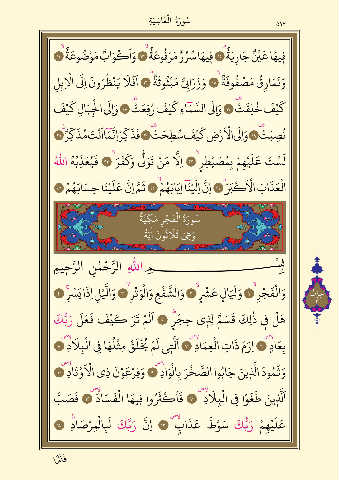 سُورَةُ الْغَاشِيَةِ
فِيهَا عَيْنٌ جَارِيَةٌۢ فِيهَا سُرُرٌ مَرْفُوعَةٌۙ وَاَكْوَابٌ مَوْضُوعَةٌۙ
وَنَمَارِقُ مَصْفُوفَةٌۙ وَزَرَابِيُّ مَبْثُوثَةٌۜ اَفَلَا يَنْظُرُونَ اِلَى الْاِبِلِ
كَيْفَ خُلِقَتْ۠ وَاِلَى السَّمَٓاءِ كَيْفَ رُفِعَتْ۠ وَاِلَى الْجِبَالِ كَيْفَ
نُصِبَتْ۠ وَاِلَى الْاَرْضِ كَيْفَ سُطِحَتْ۠ فَذَكِّرْ اِنَّمَٓا اَنْتَ مُذَكِّرٌۜ
لَسْتَ عَلَيْهِمْ بِمُصَيْطِرٍۙ اِلَّا مَنْ تَوَلّٰى وَكَفَرَۙ فَيُعَذِّبُهُ اللّٰهُ
الْعَذَابَ الْاَكْبَرَۜ اِنَّ اِلَيْنَٓا اِيَابَهُمْۙ ثُمَّ اِنَّ عَلَيْنَا حِسَابَهُمْ
سُورَةُ الْفَجْرِ مَكِّيَّةٌ
وَهِيَ ثَلَاثُونَ اٰيَةً
بِسْمِ اللّٰهِ الرَّحْمٰنِ الرَّحِيمِ
وَالْفَجْرِۙ وَلَيَالٍ عَشْرٍۙ وَالشَّفْعِ وَالْوَتْرِۙ وَالَّيْلِ اِذَا يَسْرِۚ
هَلْ فِي ذٰلِكَ قَسَمٌ لِذِي حِجْرٍۜ اَلَمْ تَرَ كَيْفَ فَعَلَ رَبُّكَ
بِعَادٍۙ اِرَمَ ذَاتِ الْعِمَادِۙ اَلَّتِي لَمْ يُخْلَقْ مِثْلُهَا فِي الْبِلَادِۙ
وَثَمُودَ الَّذِينَ جَابُوا الصَّخْرَ بِالْوَادِۙ وَفِرْعَوْنَ ذِي الْاَوْتَادِۙ
اَلَّذِينَ طَغَوْا فِي الْبِلَادِۙ فَاَكْثَرُوا فِيهَا الْفَسَادَۙ فَصَبَّ
عَلَيْهِمْ رَبُّكَ سَوْطَ عَذَابٍۙ اِنَّ رَبَّكَ لَبِالْمِرْصَادِۜ